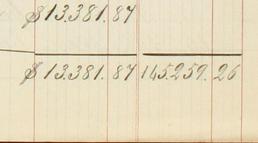 $13.381.87
$13.381.87 145.259.26